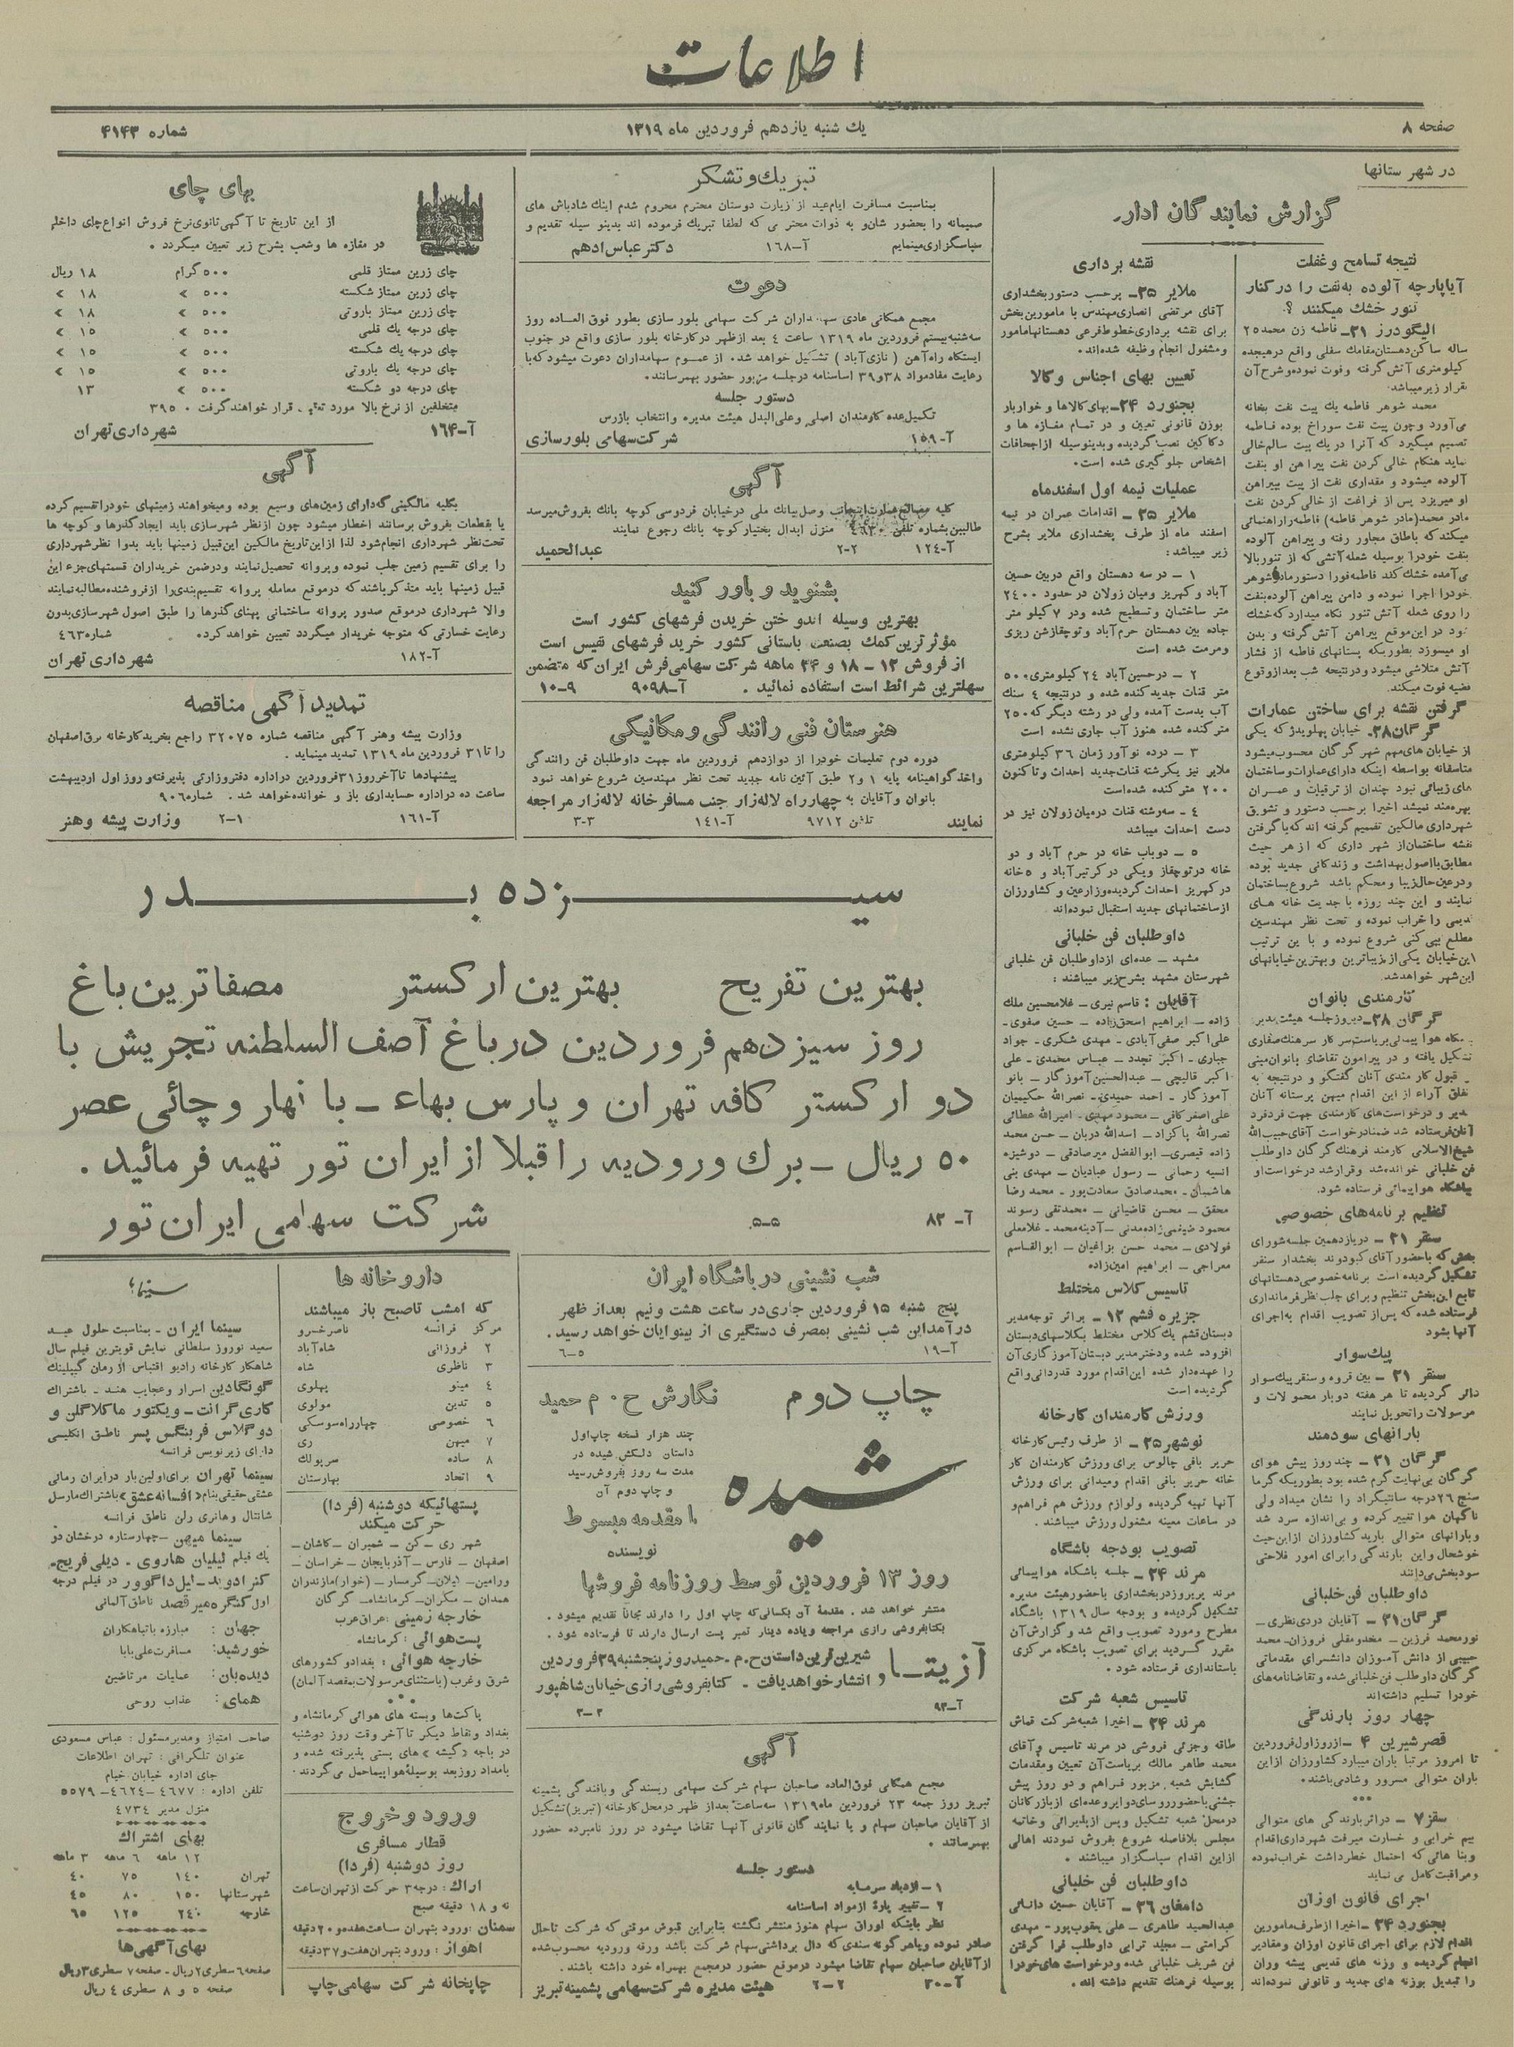 اطلاعات
صفحه ۸
یك شنبه یازدهم فروردین ماه ۱۳۱۹
شماره ۴۱۴۳
در شهرستانها
گزارش نمایندگان ادار
نتیجه تسامح و غفلت
آیا پارچه آلوده به نفت را در کنار
تنور خشك میکنند ؟
الیگودرز ۳۱ـ فاطمه زن محمد ۲۵
ساله ساکن دهستان مقامك سفلی واقع در هیجده
کیلومتری آتش گرفته و فوت نموده و شرح آن
بقرار زیر میباشد
محمد شوهر فاطمه یك پیت نفت بخانه
می‌آورد و چون پیت نفت سوراخ بوده فاطمه
تصمیم میگیرد که آنرا در یك پیت سالم خالی
نماید هنگام خالی کردن نفت پیراهن او بنفت
آلوده میشود و مقداری نفت از پیت بپیراهن
او میریزد پس از فراغت از خالی کردن نفت
مادر محمد (مادر شوهر فاطمه) فاطمه را راهنمائی
میکند که باطاق مجاور رفته و پیراهن آلوده
بنفت خود را بوسیله شعله آتشی که از تنور بالا
می‌آمده خشك کند فاطمه فورا دستور مادر شوهر
خود را اجرا نموده و دامن پیراهن آلوده بنفت
را روی شعله آتش تنور نگاه میدارد که خشك
شود در این موقع پیراهن آتش گرفته و بدن
او میسوزد بطوریکه پستانهای فاطمه از فشار
آتش متلاشی میشود و در نتیجه شب بعد از وقوع
قضیه فوت میکند.
گرفتن نقشه برای ساختن عمارات
گرگان ۲۸ـ خیابان پهلویدژ که یکی
از خیابان های مهم شهر گرگان محسوب میشود
متاسفانه بواسطه اینکه دارای عمارات و ساختمان
های زیبائی نبود چندان از ترقیات و عمران
بهره‌مند نمیشد اخیرا برحسب دستور و تشویق
شهرداری مالکین تصمیم گرفته اند که با گرفتن
نقشه ساختمان از شهرداری که از هر حیث
مطابق با اصول بهداشت و زندگانی جدید بوده
و در عین حال زیبا و محکم باشد شروع بساختمان
نمایند و این چند روزه با جدیت خانه های
قدیمی را خراب نموده و تحت نظر مهندسین
مطلع پی کنی شروع نموده و با این ترتیب
این خیابان یکی از زیباترین و بهترین خیابانهای
این شهر خواهد شد.
کارمندی بانوان
گرگان ۲۸ـ دیروز جلسه هیئت مدیره
باشگاه هواپیمائی بریاست سرکار سرهنك صفاری
تشکیل یافته و در پیرامون تقاضای بانوان مبنی
بر قبول کارمندی آنان گفتگو و در نتیجه به
اتفاق آراء از این اقدام میهن پرستانه آنان
تقدیر و درخواست های کارمندی جهت فرد فرد
آنان فرستاده شد ضمنا درخواست آقای حبیب الله
شیخ‌الاسلامی کارمند فرهنك گرگان داوطلب
فن خلبانی خوانده شد و قرار شد درخواست او
بباشگاه هواپیمائی فرستاده شود.
تنظیم برنامه‌های خصوصی
سنقر ۲۱ ـ در یازدهمین جلسه شورای
بخش که با حضور آقای کبودوند بخشدار سنقر
تشکیل گردیده است برنامه خصوصی دهستانهای
تابع این بخش تنظیم و برای جلب نظر فرمانداری
فرستاده شده که پس از تصویب اقدام به اجرای
آنها بشود
پیك سوار
سنقر ۲۱ ـ بین قروه و سنقر پیك سوار
دائر گردیده تا هر هفته دوبار محمولات و
مرسولات را تحویل نمایند
بارانهای سودمند
گرگان ۲۱ ـ چند روز پیش هوای
گرگان بی‌نهایت گرم شده بود بطوریکه گرما
سنج ۲۶ درجه سانتیگراد را نشان میداد ولی
ناگهان هوا تغییر کرده و بی‌اندازه سرد شد
و بارانهای متوالی بارید کشاورزان از این حیث
خوشحال و این بارندگی را برای امور فلاحتی
سودبخش میدانند
داوطلبان فن خلبانی
گرگان ۲۱ ـ آقایان دردی نظری ـ
نورمحمد فرزین ـ مخدومقلی فروزان ـ محمد
حبیبی از دانش آموزان دانشسرای مقدماتی
گرگان داوطلب فن خلبانی شده و تقاضانامه‌های
خود را تسلیم داشته‌اند
چهار روز بارندگی
قصر شیرین ۴ ـ از روز اول فروردین
تا امروز مرتبا باران میبارد کشاورزان از این
باران متوالی مسرور و شادمی‌باشند.
سقز ۷ ـ در اثر بارندگی های متوالی
بیم خرابی و خسارت میرفت شهرداری اقدام
و بنا هائی که احتمال خطر داشت خراب نموده
و مراقبت کامل می نماید
اجرای قانون اوزان
بجنورد ۲۴ـ اخیرا از طرف مامورین
اقدام لازم برای اجرای قانون اوزان و مقادیر
انجام گردیده و وزنه های قدیمی پیشه وران
را تبدیل بوزنه های جدید و قانونی نموده‌اند
نقشه برداری
ملایر ۲۵ـ برحسب دستور بخشداری
آقای مرتضی انصاری مهندس با مامورین بخش
برای نقشه برداری خطوط فرعی دهستانها مامور
و مشغول انجام وظیفه شده‌اند.
تعیین بهای اجناس و کالا
بجنورد ۲۴ـ بهای کالاها و خواربار
بوزن قانونی تعیین و در تمام مغازه ها و
دکاکین نصب گردیده و بدینوسیله از اجحافات
اشخاص جلوگیری شده است.
عملیات نیمه اول اسفندماه
ملایر ۲۵ ـ اقدامات عمران در نیمه
اسفند ماه از طرف بخشداری ملایر بشرح
زیر میباشد :
۱ ـ در سه دهستان واقع در بین حسین
آباد و کهریز و میان زولان در حدود ۲۴۰۰
متر ساختمان و تسطیح شده و در ۷ کیلو متر
جاده بین دهستان حرم آباد و توچقاز شن ریزی
و مرمت شده است
۲ ـ در حسین آباد ۲۴ کیلومتری ۵۰۰
متر قنات جدید کنده شده و در نتیجه ۴ سنك
آب بدست آمده ولی در رشته دیگر که ۲۵۰
متر کنده شده هنوز آب جاری نشده است
۳ ـ در ده نوآور زمان ۳۶ کیلومتری
ملایر نیز یکرشته قنات جدید احداث و تاکنون
۲۰۰ متر کنده شده است
۴ ـ سه رشته قنات در میان زولان نیز در
دست احداث میباشد
۵ ـ دو باب خانه در حرم آباد و دو
خانه در توچقاز و یکی در کرتیر آباد و ۵ خانه
در کهریز احداث گردیده و زارعین و کشاورزان
از ساختمانهای جدید استقبال نموده‌اند
داوطلبان فن خلبانی
مشهد ـ عده‌ای از داوطلبان فن خلبانی
شهرستان مشهد بشرح زیر میباشند :
آقایان : قاسم نیری ـ غلامحسین ملك
زاده ـ ابراهیم اسحق‌زاده ـ حسین صفوی ـ
علی‌اکبر صفی‌آبادی ـ مهدی شکری ـ جواد
جباری ـ اکبر تجدد ـ عباس محمدی ـ علی
اکبر قالیچی ـ عبدالحسین آموزگار ـ بانو
آموزگار ـ احمد حمیدی ـ نصرالله حکیمیان
علی‌اصغر کافی ـ محمود مهدی ـ امیرالله عطائی
نصرالله پاکزاد ـ اسدالله دربان ـ حسن محمد
زاده قیصری ـ ابوالفضل میرصادقی ـ دوشیزه
انسیه رحمانی ـ رسول عبادیان ـ مهدی بنی
هاشمیان ـ محمدصادق سعادت‌پور ـ محمد رضا
محقق ـ محسن قاضیانی ـ محمدتقی رسوند
محمود ضیغمی‌زاده مدنی ـ آدینه محمد ـ غلامعلی
فولادی ـ محمد حسن بزاغیان ـ ابوالقاسم
معراجی ـ ابراهیم امین‌زاده
تاسیس کلاس مختلط
جزیره قشم ۱۲ ـ براثر توجه مدیر
دبستان قشم یك کلاس مختلط بکلاسهای دبستان
افزوده شده و دختر مدیر دبستان آموزگاری آن
را عهده‌دار شده این اقدام مورد قدردانی واقع
گردیده است
ورزش کارمندان کارخانه
نوشهر ۲۵ـ از طرف رئیس کارخانه
حریر بافی چالوس برای ورزش کارمندان کار
خانه حریر بافی اقدام و میدانی برای ورزش
آنها تهیه گردیده و لوازم ورزش هم فراهم و
در ساعات معینه مشغول ورزش میباشند.
تصویب بودجه باشگاه
مرند ۲۴ـ جلسه باشگاه هواپیمائی
مرند پریروز در بخشداری با حضور هیئت مدیره
تشکیل گردیده و بودجه سال ۱۳۱۹ باشگاه
مطرح و مورد تصویب واقع شد و گزارش آن
مقرر گردید برای تصویب باشگاه مرکزی
باستانداری فرستاده شود .
تاسیس شعبه شرکت
مرند ۲۴ـ اخیرا شعبه شرکت قماش
طاقه و جزئی فروشی در مرند تاسیس و آقای
محمد طاهر مالك بریاست آن تعیین و مقدمات
گشایش شعبه مزبور فراهم و دو روز پیش
جشنی با حضور روسای دوایر و عده‌ای از بازرگانان
در محل شعبه تشکیل و پس از پذیرائی و خاتمه
مجلس بلافاصله شروع بفروش نمودند اهالی
از این اقدام سپاسگزار میباشند .
داوطلبان فن خلبانی
دامغان ۲۶ ـ آقایان حسین دانائی
عبدالحمید طاهری ـ علی یعقوب‌پور ـ مهدی
کرامتی ـ مجید ترابی داوطلب فرا گرفتن
فن شریف خلبانی شده و درخواست های خود را
بوسیله فرهنك تقدیم داشته اند.
تبریك و تشکر
بمناسبت مسافرت ایام عید از زیارت دوستان محترم محروم شدم اینك شادباش های
صمیمانه را بحضور شان و به ذوات محترمی که لطفا تبریك فرموده اند بدینوسیله تقدیم و
سپاسگزاری مینمایم
آ-۱۶۸
دکتر عباس ادهم
دعوت
مجمع همگانی عادی سهامداران شرکت سهامی بلور سازی بطور فوق العاده روز
سه‌شنبه بیستم فروردین ماه ۱۳۱۹ ساعت ۴ بعد از ظهر در کارخانه بلور سازی واقع در جنوب
ایستگاه راه آهن ( نازی‌آباد ) تشکیل خواهد شد. از عموم سهامداران دعوت میشود که با
رعایت مفاد مواد ۳۸ و ۳۹ اساسنامه در جلسه مزبور حضور بهمرسانند.
دستور جلسه
تکمیل عده کارمندان اصلی و علی البدل هیئت مدیره و انتخاب بازرس
آ-۱۵۹
شرکت سهامی بلور سازی
آگهی
کلیه مصالح عمارت وصل ببانك ملی در خیابان فردوسی کوچه بانك بفروش میرسد
طالبین بشماره تلفن ۴۶۳۰ منزل ابدال بختیار کوچه بانك رجوع نمایند
آ-۱۲۴
۲-۲
عبدالحمید
بشنوید و باور کنید
بهترین وسیله اندوختن خریدن فرشهای کشور است
مؤثرترین کمك بصنعت باستانی کشور خرید فرشهای نفیس است
از فروش ۱۲ ـ ۱۸ و ۲۴ ماهه شرکت سهامی فرش ایران که متضمن
سهلترین شرائط است استفاده نمائید .
آ-۹۰۹۸
۹-۱۰
هنرستان فنی رانندگی و مکانیکی
دوره دوم تعلیمات خود را از دوازدهم فروردین ماه جهت داوطلبان فن رانندگی
و اخذ گواهینامه پایه ۱ و ۲ طبق آئین نامه جدید تحت نظر مهندسین شروع خواهد نمود
بانوان و آقایان به چهارراه لاله‌زار جنب مسافرخانه لاله‌زار مراجعه
نمایند
تلفن ۹۷۱۲
آ-۱۴۱
۳-۳
بهای چای
از این تاریخ تا آگهی ثانوی نرخ فروش انواع چای داخلی
در مغازه ها و شعب بشرح زیر تعیین میگردد .
چای زرین ممتاز قلمی ۵۰۰ گرام ۱۸ ریال
چای زرین ممتاز شکسته ۵۰۰ » ۱۸ »
چای زرین ممتاز باروتی ۵۰۰ » ۱۸ »
چای درجه یك قلمی ۵۰۰ » ۱۵ »
چای درجه یك شکسته ۵۰۰ » ۱۵ »
چای درجه یك باروتی ۵۰۰ » ۱۵ »
چای درجه دو شکسته ۵۰۰ » ۱۳
متخلفین از نرخ بالا مورد تعقیب قرار خواهند گرفت ۳۹۵۰
آ-۱۶۴
شهرداری تهران
آگهی
بکلیه مالکینی که دارای زمین‌های وسیع بوده و میخواهند زمینهای خود را تقسیم کرده
یا بقطعات بفروش برسانند اخطار میشود چون از نظر شهرسازی باید ایجاد گذرها و کوچه ها
تحت نظر شهرداری انجام شود لذا از این تاریخ مالکین این قبیل زمینها باید بدوا نظر شهرداری
را برای تقسیم زمین جلب نموده و پروانه تحصیل نمایند و در ضمن خریداران قسمتهای جزء این
قبیل زمینها باید متذکر باشند که در موقع معامله پروانه تقسیم‌بندی را از فروشنده مطالبه نمایند
والا شهرداری در موقع صدور پروانه ساختمانی پهنای گذرها را طبق اصول شهرسازی بدون
رعایت خسارتی که متوجه خریدار میگردد تعیین خواهد کرد .
شماره ۴۶۳
آ-۱۸۲
شهرداری تهران
تمدید آگهی مناقصه
وزارت پیشه و هنر آگهی مناقصه شماره ۳۲۰۷۵ راجع بخرید کارخانه برق اصفهان
را تا ۳۱ فروردین ماه ۱۳۱۹ تمدید مینماید .
پیشنهادها تا آخر روز ۳۱ فروردین در اداره دفتر وزارتی پذیرفته و روز اول اردیبهشت
ساعت ده در اداره حسابداری باز و خوانده خواهد شد . شماره ۹۰۶
آ-۱۶۱
۱-۲
وزارت پیشه و هنر
سیزده بدر
بهترین تفریح بهترین ارکستر مصفاترین باغ
روز سیزدهم فروردین در باغ آصف السلطنه تجریش با
دو ارکستر کافه تهران و پارس بهاء ـ با نهار و چائی عصر
۵۰ ریال ـ برك ورودیه را قبلا از ایران تور تهیه فرمائید.
آ-۸۳
۵-۵
شرکت سهامی ایران تور
شب نشینی در باشگاه ایران
پنج شنبه ۱۵ فروردین جاری در ساعت هشت و نیم بعد از ظهر
درآمد این شب نشینی بمصرف دستگیری از بینوایان خواهد رسید.
آ-۱۹
۵-۶
چاپ دوم
نگارش ح . م حمید
چند هزار نسخه چاپ اول
داستان دلکش شیده در
مدت سه روز بفروش رسید
و چاپ دوم آن
شیده
با مقدمه مبسوط
نویسنده
روز ۱۳ فروردین توسط روزنامه فروشها
منتشر خواهد شد . مقدمهٔ آن بکسانی که چاپ اول را دارند مجاناً تقدیم میشود .
بکتابفروشی رازی مراجعه و یا ده دینار تمبر پست ارسال دارند تا فرستاده شود .
آزیتا
شیرین ترین داستان ح.م.حمید روز پنجشنبه ۲۹ فروردین
انتشار خواهد یافت ـ کتابفروشی رازی خیابان شاهپور
آ-۹۳
۲-۲
آگهی
مجمع همگانی فوق العاده صاحبان سهام شرکت سهامی ریسندگی و بافندگی پشمینه
تبریز روز جمعه ۲۳ فروردین ماه ۱۳۱۹ سه ساعت بعد از ظهر در محل کارخانه (تبریز) تشکیل
از آقایان صاحبان سهام و یا نمایندگان قانونی آنها تقاضا میشود در روز نامبرده حضور
بهمرسانند .
دستور جلسه
۱ ـ ازدیاد سرمایه
۲ ـ تغییر پارهٔ از مواد اساسنامه
نظر باینکه اوراق سهام هنوز منتشر نگشته بنابراین قبوض موقتی که شرکت تا حال
صادر نموده و یا هر گونه سندی که دال بر داشتن سهام شرکت باشد ورقه ورودیه محسوب شده
از آقایان صاحبان سهام تقاضا میشود در موقع حضور در مجمع بهمراه خود داشته باشند .
آ-۲۰
۲-۲
هیئت مدیره شرکت سهامی پشمینه تبریز
داروخانه ها
که امشب تا صبح باز میباشند
مرکز فرانسه ناصرخسرو
۲ فروزانی شاه‌آباد
۳ ناظری شاه
۴ مینو پهلوی
۵ تدین مولوی
۶ خصوصی چهارراه سوسکی
۷ میهن ری
۸ ساده سرپولك
۹ اتحاد بهارستان
پستهائیکه دوشنبه (فردا)
حرکت میکند
شهر ری ـ کن ـ شمیران ـ کاشان ـ
اصفهان ـ فارس ـ آذربایجان ـ خراسان ـ
ورامین ـ گیلان ـ گرمسار ـ (خوار) مازندران
همدان ـ مکران ـ کرمانشاه ـ گرگان
خارجه زمینی : عراق عرب
پست هوائی : کرمانشاه
خارجه هوائی : بغداد و کشورهای
شرق و غرب (باستثنای مرسولات بمقصد آلمان)
پاکت‌ها و بسته های هوائی کرمانشاه و
بغداد و نقاط دیگر تا آخر وقت روز دوشنبه
در باجه «گیشه» های پستی پذیرفته شده و
بامداد روز بعد بوسیلهٔ هواپیما حمل می گردند.
ورود و خروج
قطار مسافری
روز دوشنبه (فردا)
اراك : درجه ۳ حرکت از تهران ساعت
نه و ۱۸ دقیقه صبح
سمنان : ورود بتهران ساعت هفده و ۲۰ دقیقه
اهواز : ورود بتهران هفت و ۳۷ دقیقه
چاپخانه شرکت سهامی چاپ
سینما
سینما ایران ـ بمناسبت حلول عید
سعید نوروز سلطانی نمایش قویترین فیلم سال
شاهکار کارخانه رادیو اقتباس از رمان کیپلینك
گونگادین اسرار و عجایب هند ـ باشتراك
کاری گرانت ـ ویکتور ماکلاگلن و
دوگلاس فربنکس پسر ناطق انگلیسی
دارای زیرنویس فرانسه
سینما تهران برای اولین بار در ایران رمانی
عشقی حقیقی بنام «افسانه عشق» باشتراك مارسل
شانتال و هانری رلن ناطق فرانسه
سینما میهن ـ چهار ستاره درخشان در
یك فیلم لیلیان هاروی ـ دیلی فریج ـ
کنراد وید ـ لیل داگوور در فیلم درجه
اول کنگره میرقصد ناطق آلمانی
جهان : مبارزه با تباهکاران
خورشید : مسافرت علی‌بابا
دیده‌بان : عملیات مرتاضین
همای : عذاب روحی
صاحب امتیاز و مدیر مسئول : عباس مسعودی
عنوان تلگرافی : تهران اطلاعات
جای اداره خیابان خیام
تلفن اداره : ۴۶۷۷ ـ ۴۶۲۴ ـ ۵۵۷۹
منزل مدیر ۴۷۳۴
بهای اشتراك
۱۲ ماهه ۶ ماهه ۳ ماهه
تهران ۱۴۰ ۷۵ ۴۰
شهرستانها ۱۵۰ ۸۰ ۴۵
خارجه ۲۴۰ ۱۲۵ ۶۵
بهای آگهی‌ها
صفحه ۶ سطری ۲ ریال ـ صفحه ۷ سطری ۳ ریال
صفحه ۵ و ۸ سطری ۴ ریال